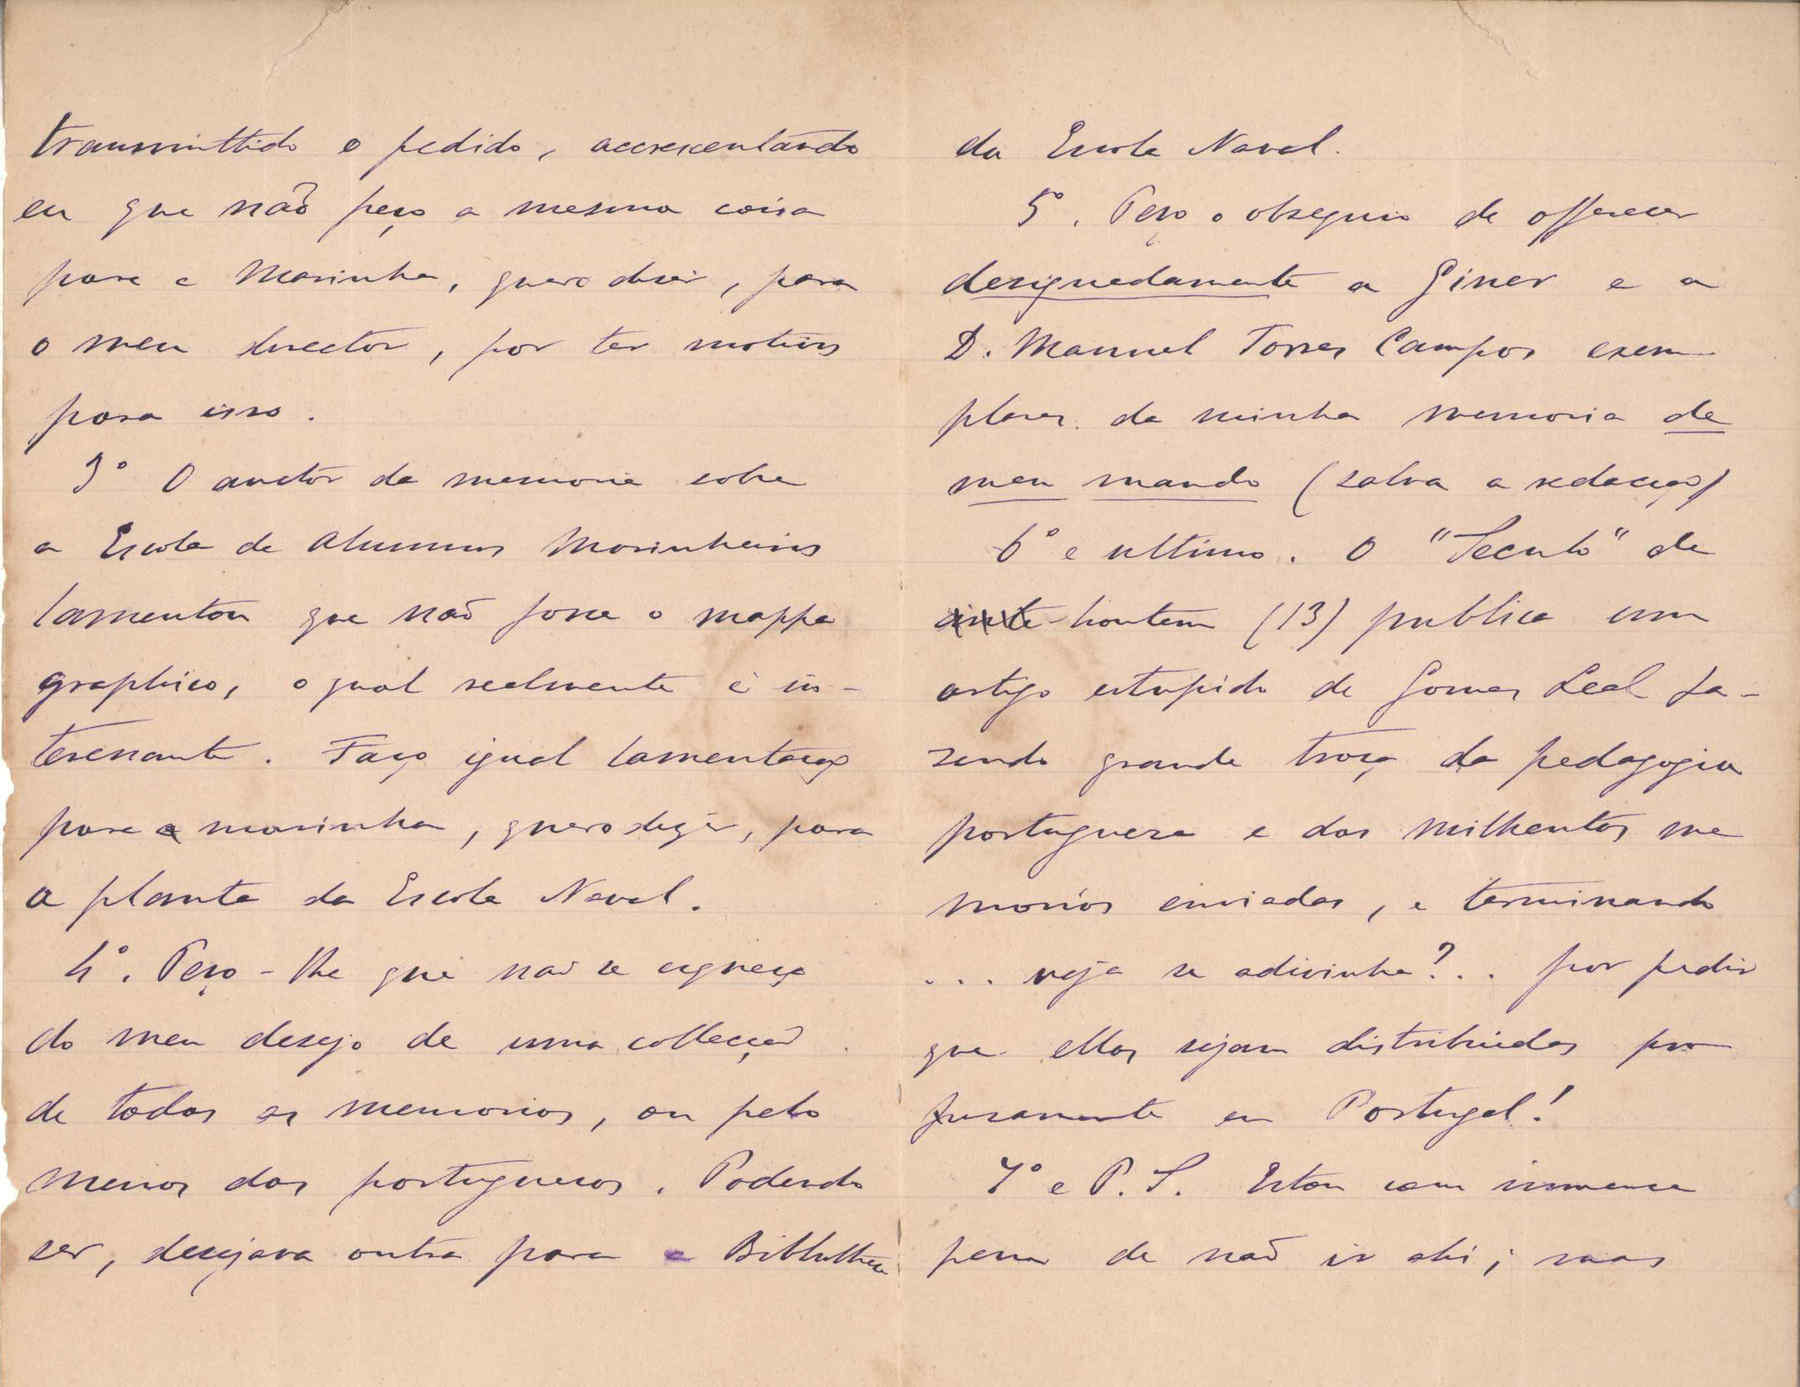 transmittido o pedido, accrescentando
eu que não peço a mesma coisa
para a Marinha, quero dizer, para
o meu director, por ter motivos
para isso.
3º O auctor da memoria sobre
a Escola de Alumnos Marinheiros
lamentou que não fosse o mappa
graphico, o qual realmente é in-
teressante. Faço igual lamentação
para a marinha, quero dizer, para
a planta da Escola Naval.
4º. Peço-lhe que não se esqueça
do meu desejo de uma collecção
de todas as memorias, ou pelo
menos das portuguesas. Podendo
ser, desejava outra para a Bibliotheca
da Escola Naval.
5º. Peço o obsequio de offerecer
designadamente a Giner e a
D. Manuel Torres Campos exem-
plares da minha memoria de
meu mando (salva a redacção)
6º e ultimo. O "Seculo" de
ante-hontem (13) publica um
artigo estupido de Gomes Leal fa-
zendo grande troça da pedagogia
portuguesa e das milhentas me
morias enviadas, e terminando
... veja se adivinha?... por pedir
que ellas sejam distribuidas pro
fusamente em Portugal!
7º e P.S. Estou com immensa
pena de não ir ahi; mas